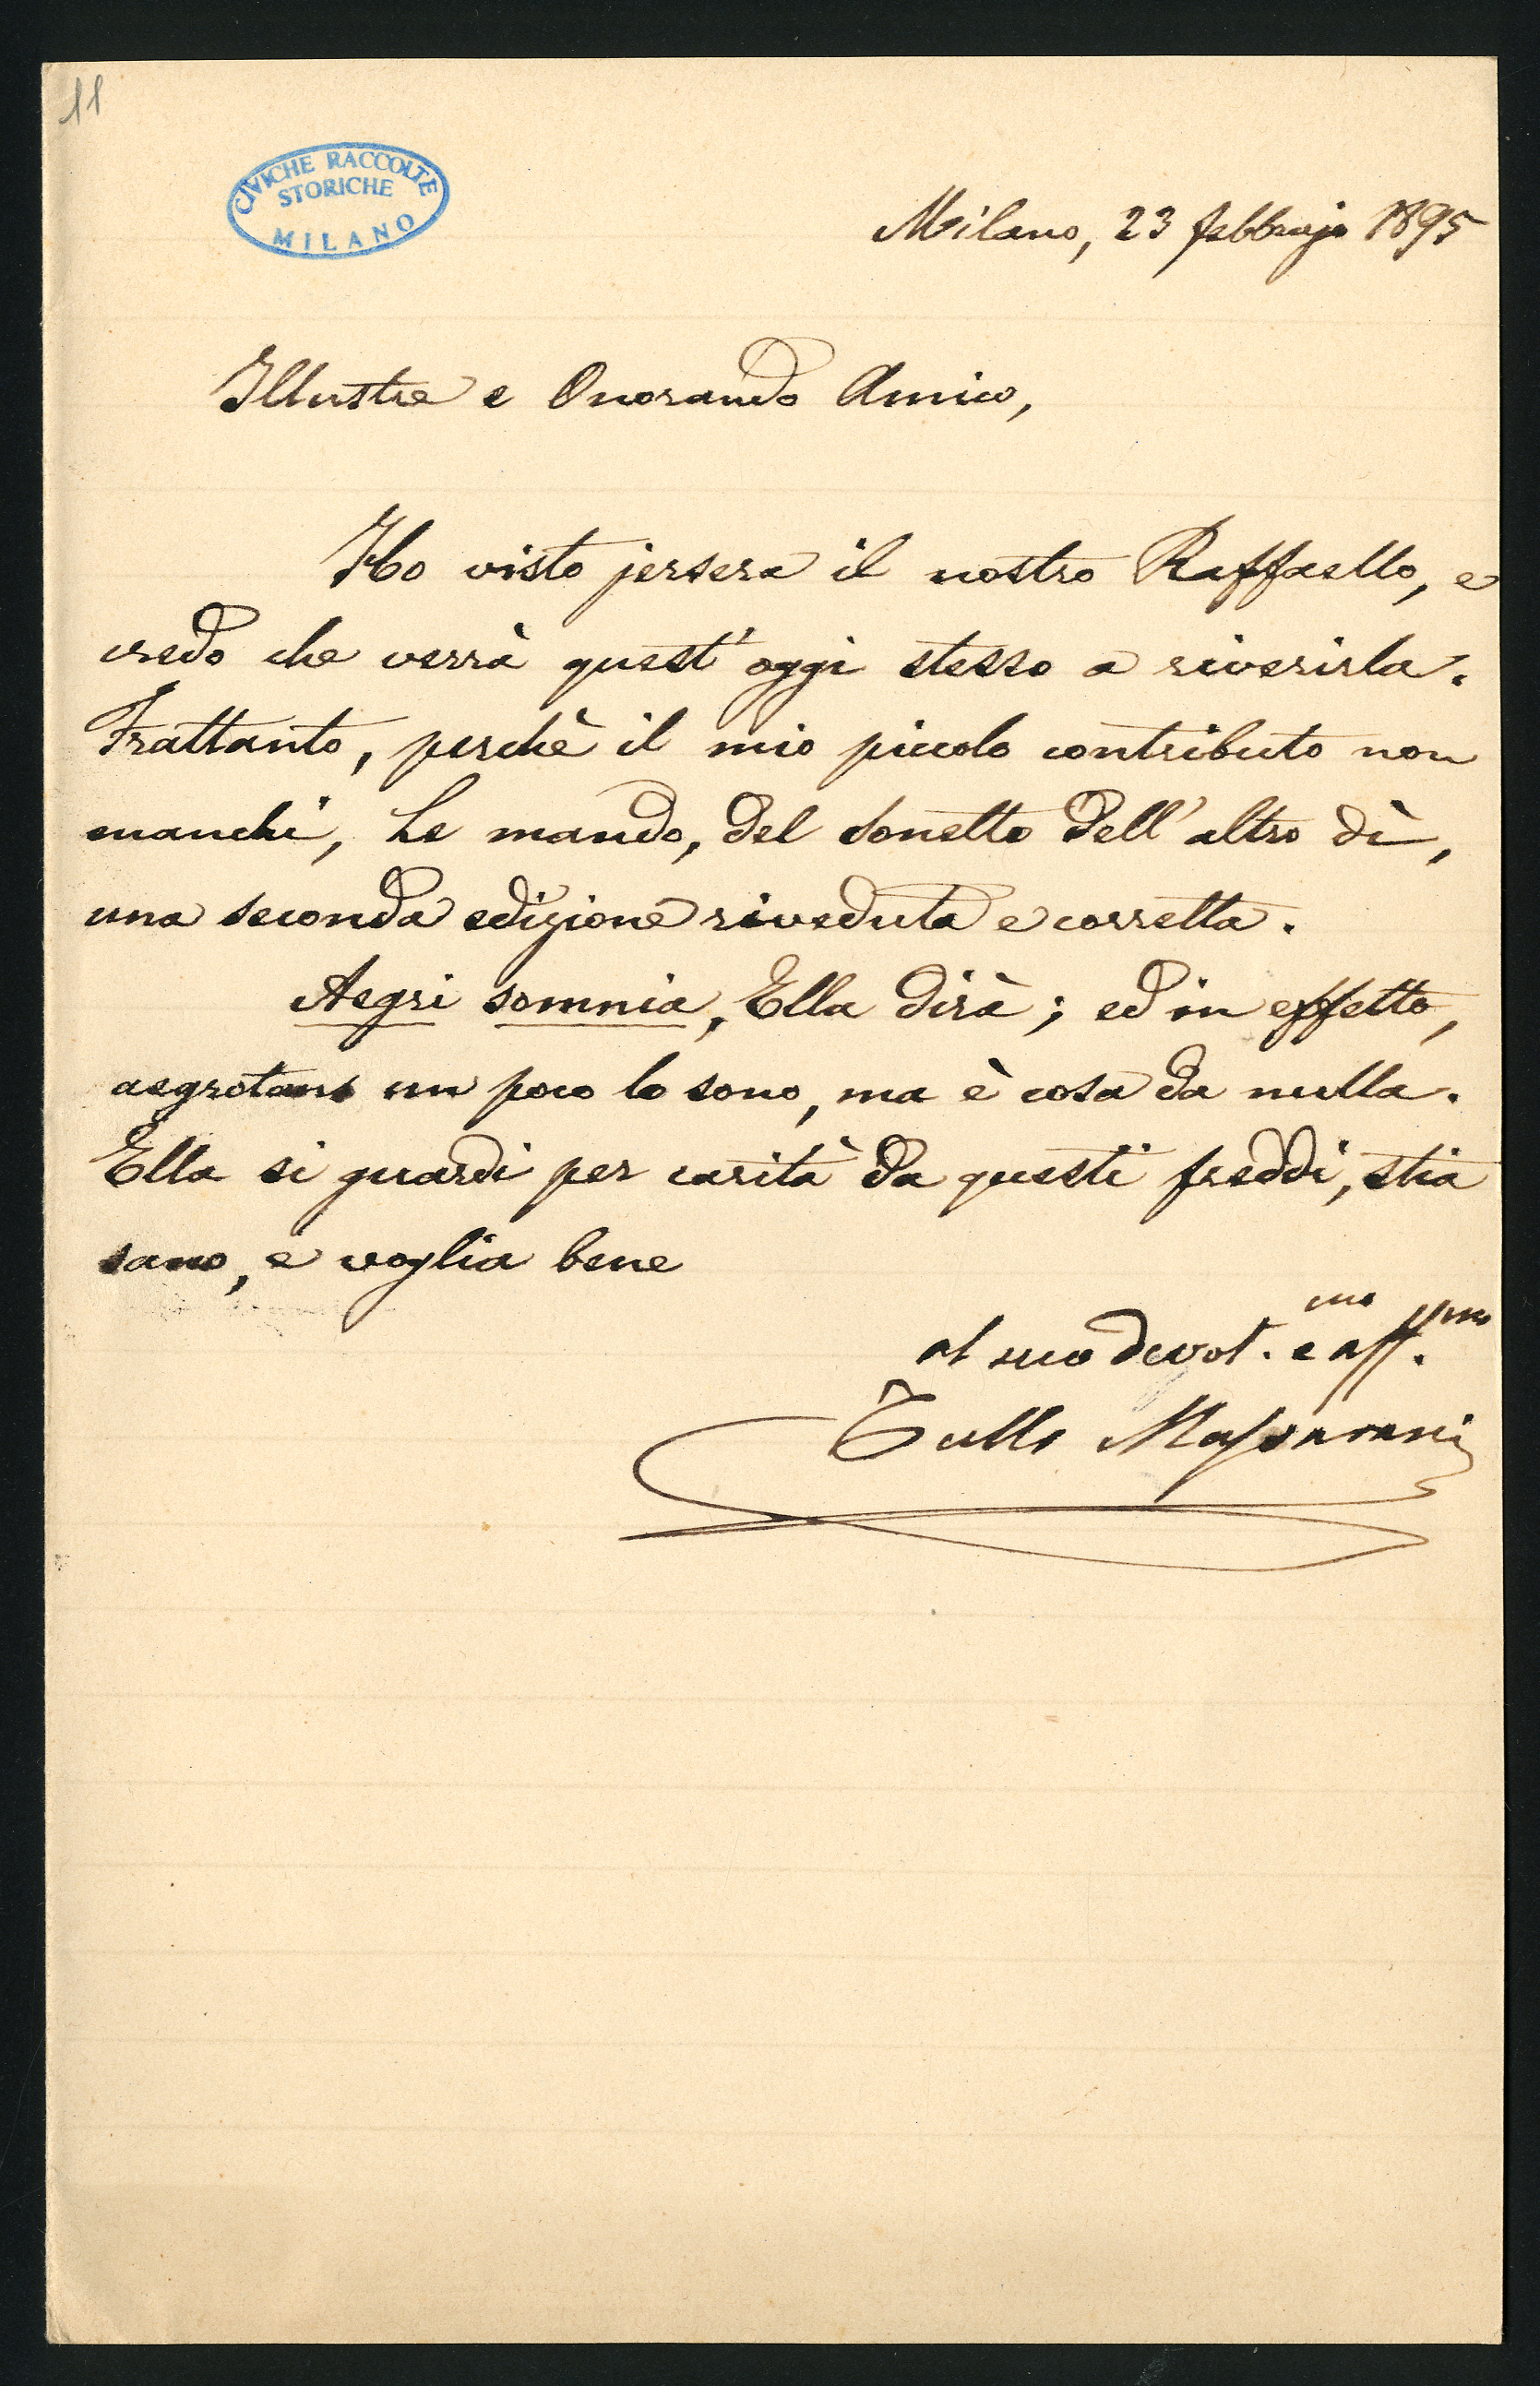 11
CIVICHE RACCOLTE
STORICHE
MILANO
Milano, 23 febbrajo 1895
Illustre e Onorando Amico,
Ho visto jersera il nostro Raffaello, e
credo che verrà quest'oggi stesso a riverirla.
Frattanto, perchè il mio piccolo contributo non
manchi, Le mando, del sonetto dell'altro dì,
una seconda edizione riveduta e corretta.
Aegri somnia, Ella dirà; ed in effetto,
aegrotans un poco lo sono, ma è cosa da nulla.
Ella si guardi per carità da questi freddi, stia
sano, e voglia bene
al suo devot.mo e aff.mo
Tullo Massarani